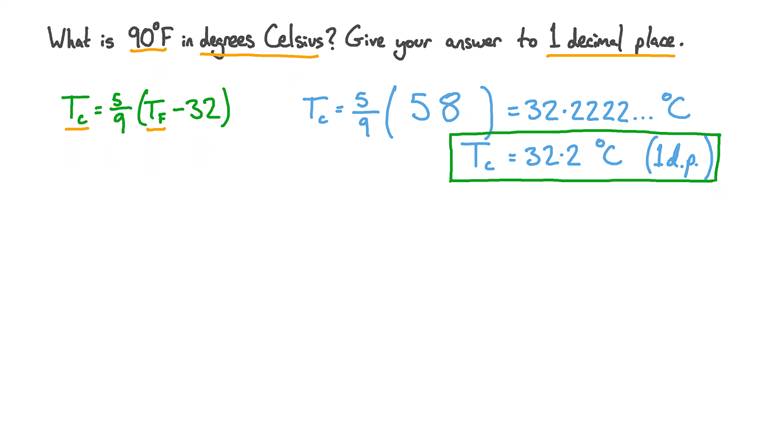 What is 90°F in degrees Celsius? Give your answer to 1 decimal place.
T_c = 5/9 (T_F - 32)
T_c = 5/9 (58) = 32·2222... °C
T_c = 32·2 °C (1 d.p.)